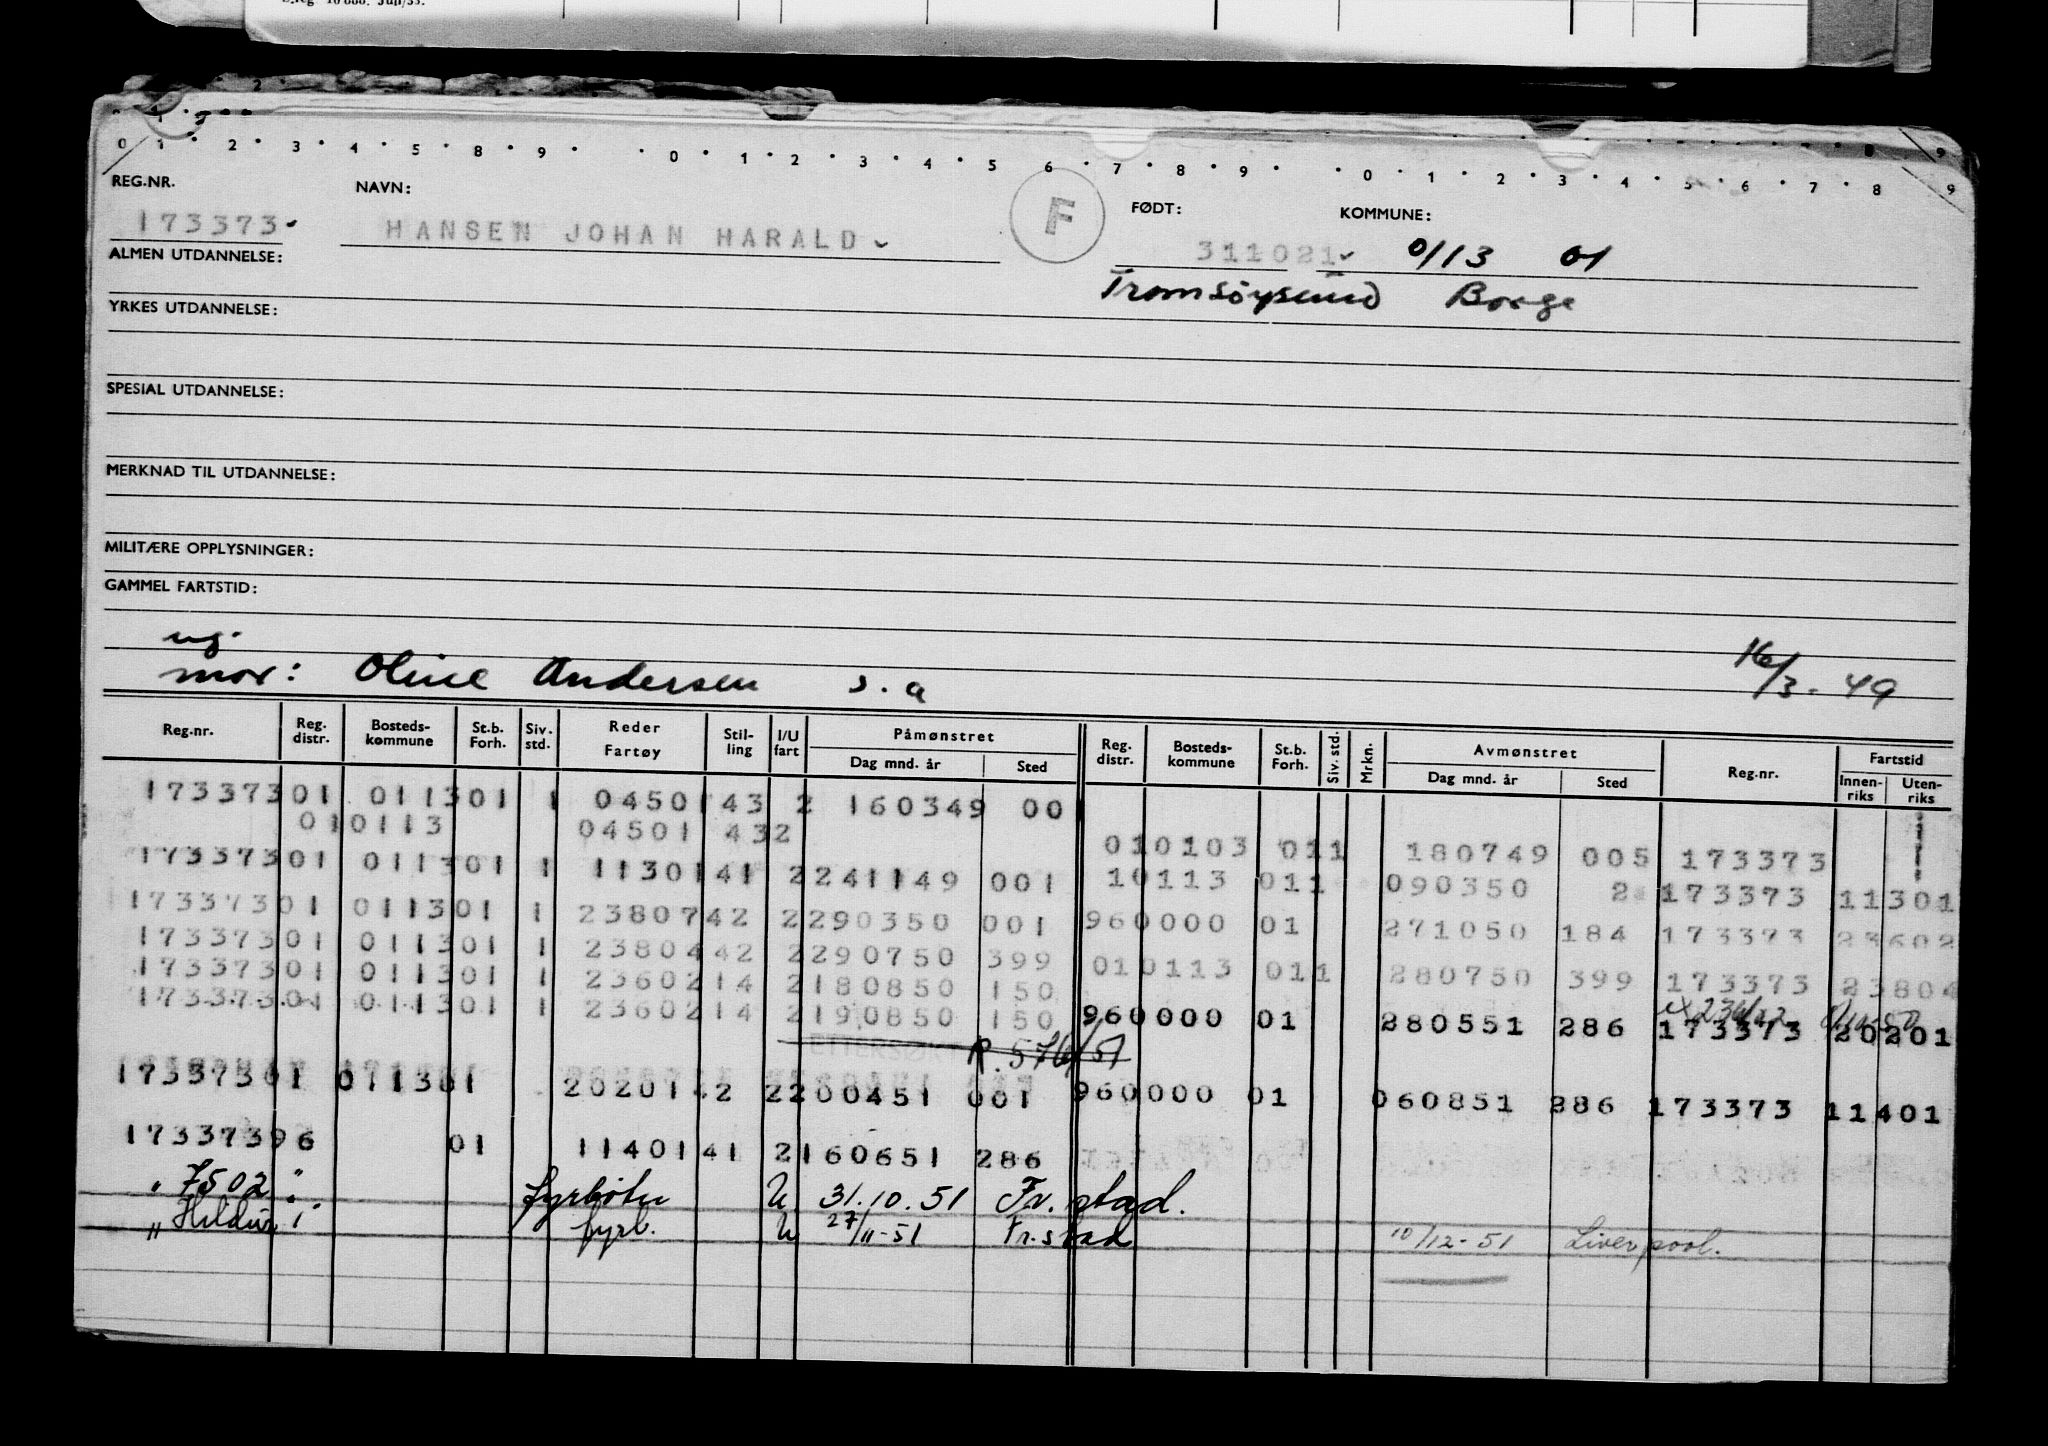 0 1 2 3 4 5 8 9 0 1 2 3 4 5 6 7 8 9 0 1 2 3 4 5 6 7 8 9
REG.NR. NAVN: F FØDT: KOMMUNE:
173373 HANSEN JOHAN HARALD 311021 0113 01
ALMEN UTDANNELSE:
Tromsøysund Borge
YRKES UTDANNELSE:
SPESIAL UTDANNELSE:
MERKNAD TIL UTDANNELSE:
MILITÆRE OPPLYSNINGER:
GAMMEL FARTSTID:
ug.
mor: Oline Andersen s.a 16/3-49
Reg.nr. Reg. distr. Bosteds-kommune St.b. Forh. Siv. std. Reder Fartøy Stil-ling I/U fart Påmønstret Dag mnd. år Sted Reg. distr. Bosteds-kommune St.b. Forh. Siv. std. Mrkn. Avmønstret Dag mnd. år Sted Reg.nr. Fartstid Innen-riks Uten-riks
173373 01 0113 01 1 04501 43 2 160349 00
010113 04501 432 010103 011 180749 005 173373
173373 01 0113 01 1 11301 41 2 241149 001 10113 011 090350 2 173373 11301
173373 01 0113 01 1 23807 42 2 290350 001 960000 01 271050 184 173373 23602
173373 01 0113 01 1 23804 42 2 290750 399 010113 011 280750 399 173373 23804
173373 01 0113 01 1 23602 14 2 180850 150
173373 01 0113 01 1 23602 14 2 190850 150 960000 01 280551 286 173373 20201
ETTERSØKT R. 576/51
173373 01 0113 01 20201 42 2 200451 001 960000 01 060851 286 173373 11401
173373 96 01 11401 41 2 160651 286
" 7502 " fyrbøter U 31.10.51 Fr.stad.
" Hildur I fyrb. U 27/11-51 Fr.stad 10/12-51 Liverpool.